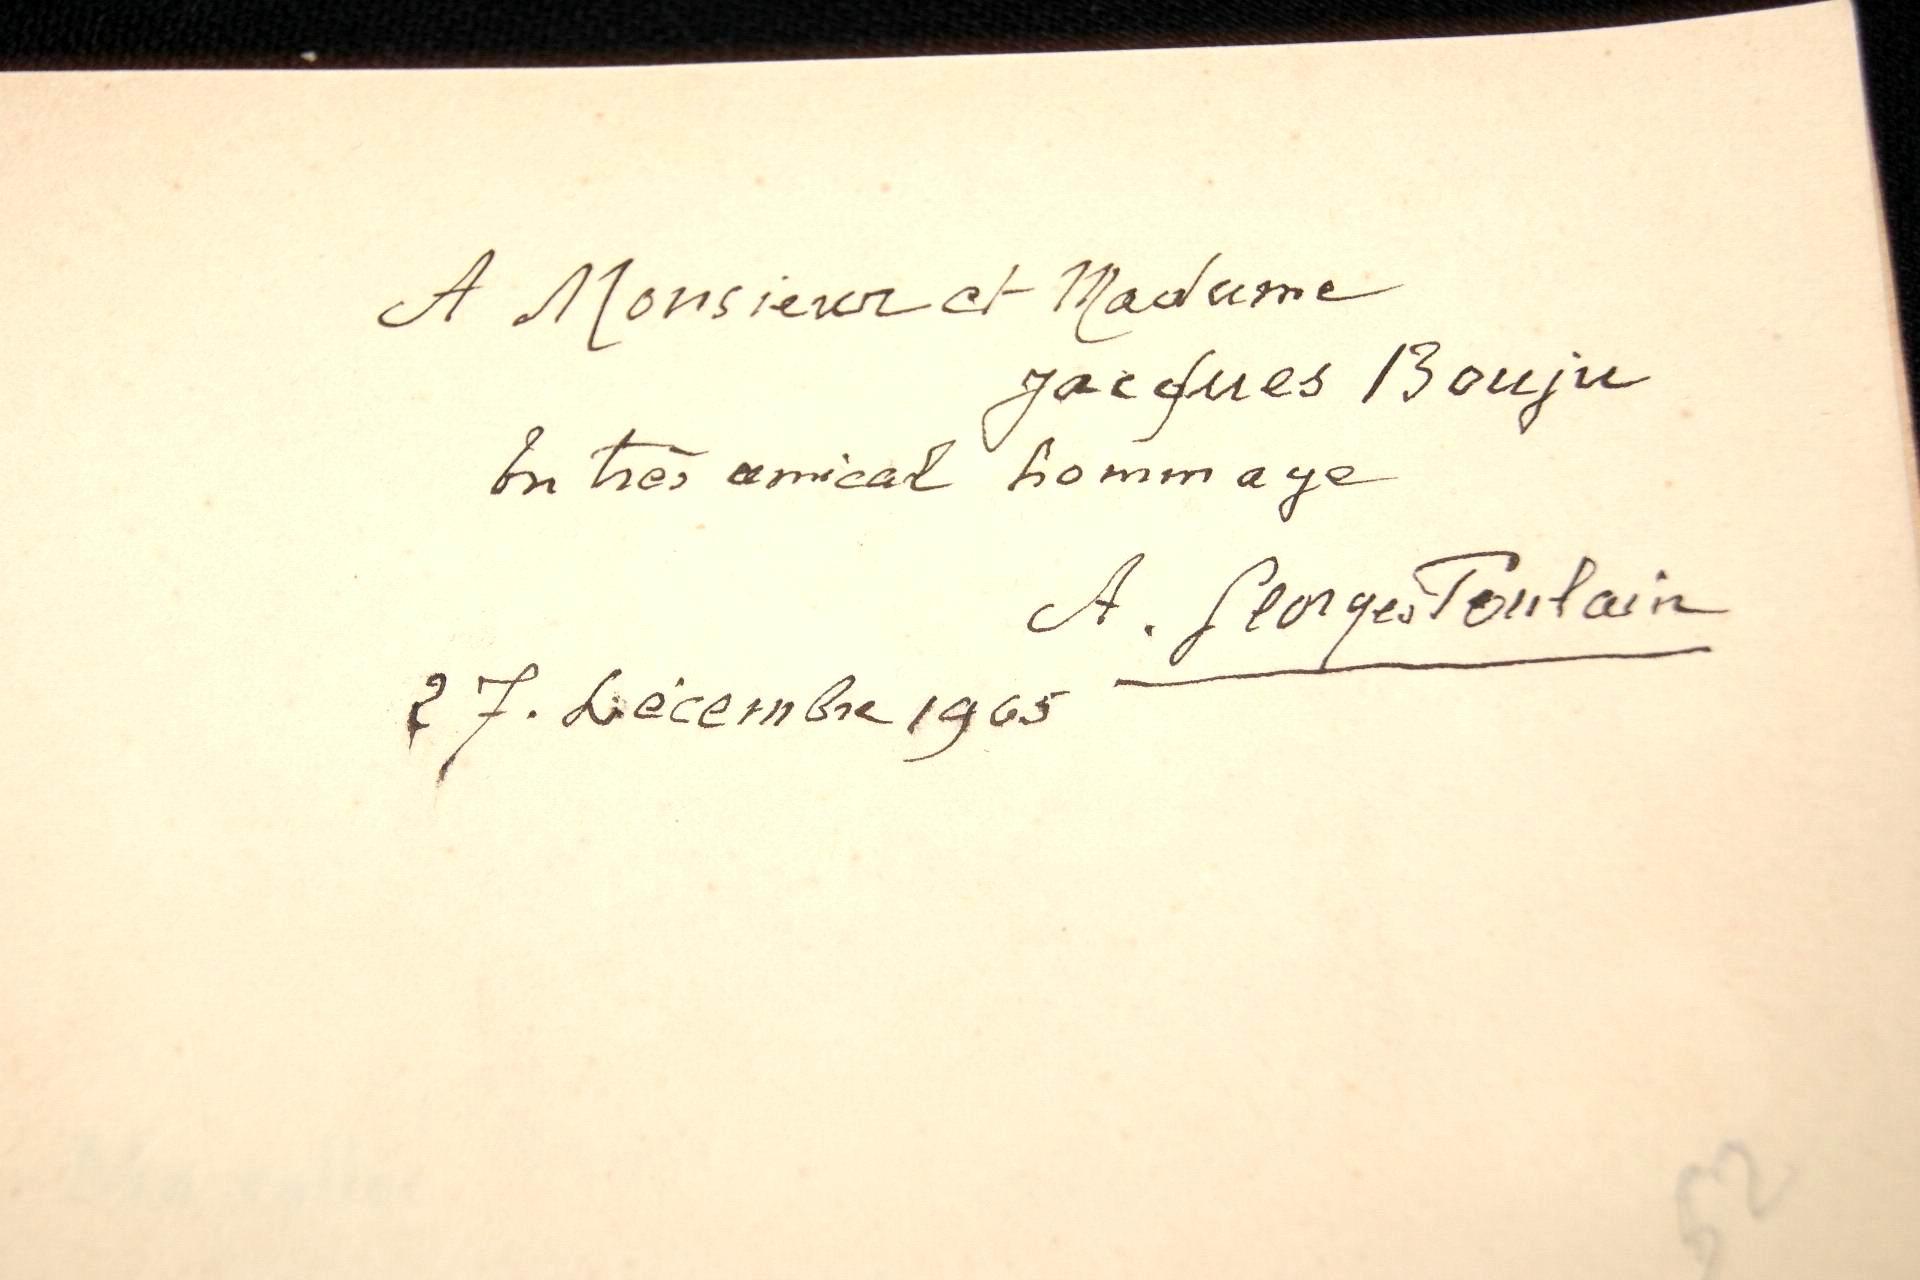 A Monsieur et Madame
Jacques Bouju
En très amical hommage
A. Georges Poulain
27. Décembre 1965
52